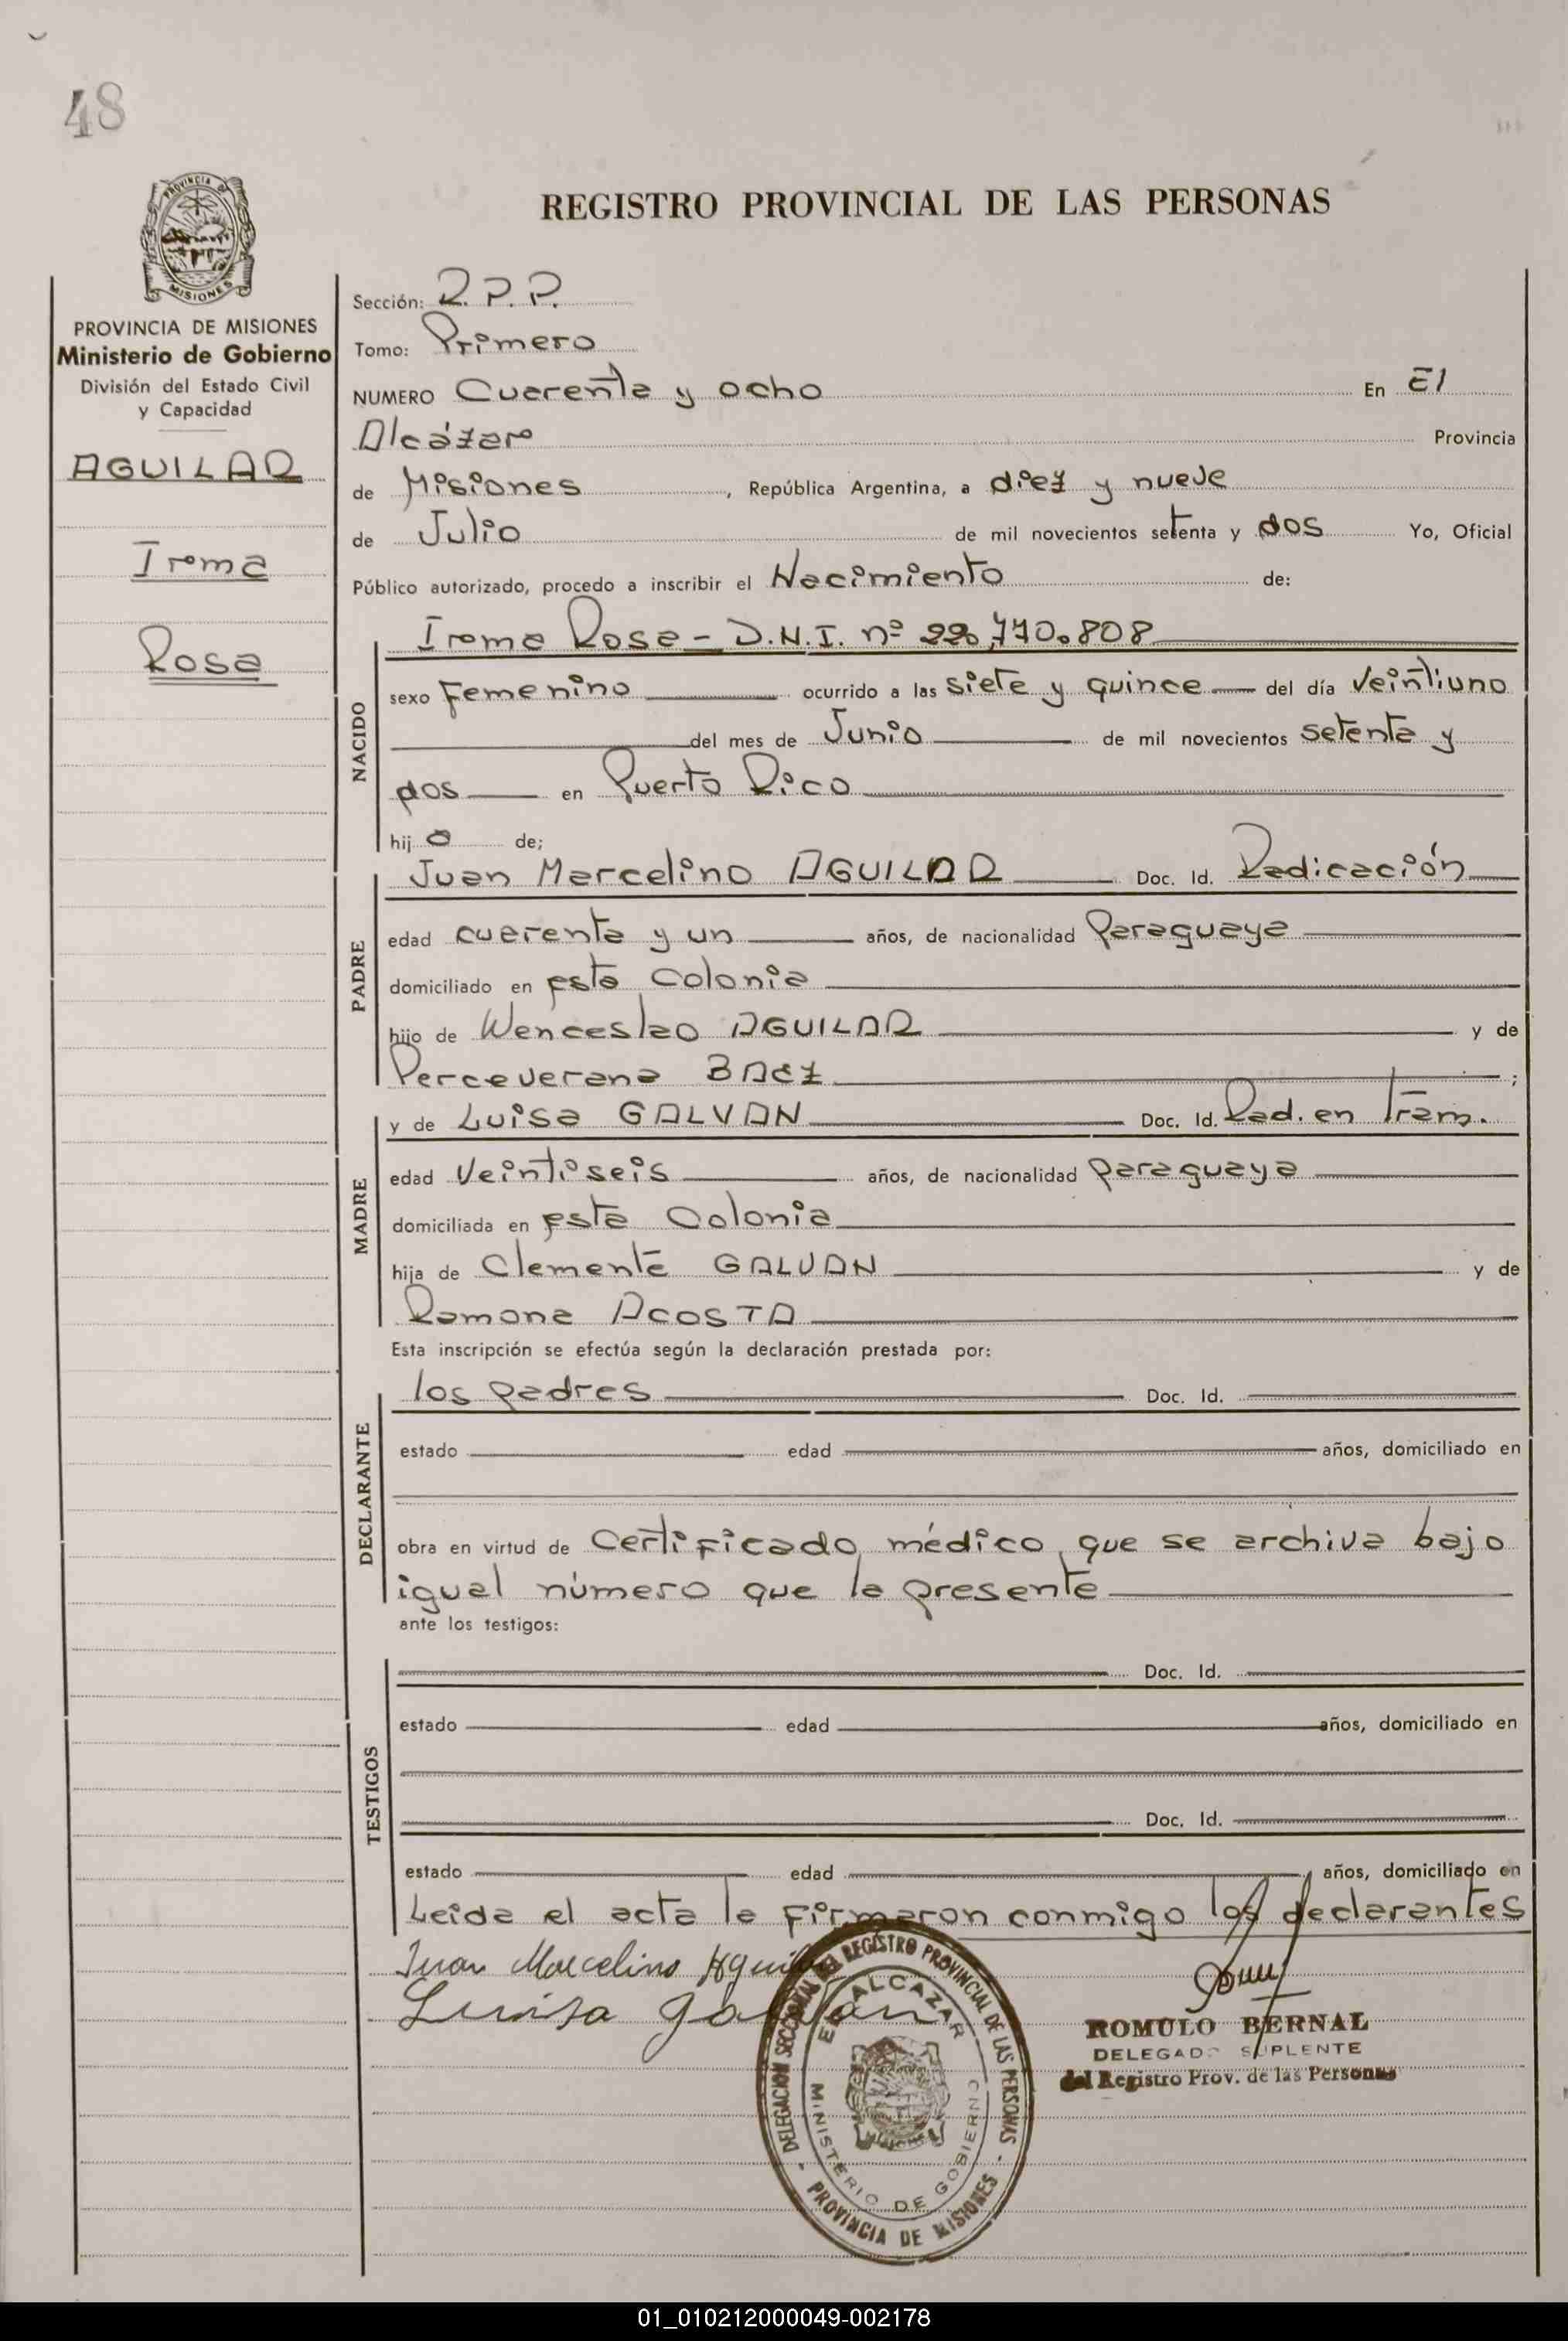 48
REGISTRO PROVINCIAL DE LAS PERSONAS
PROVINCIA DE MISIONES
Ministerio de Gobierno
División del Estado Civil
y Capacidad
AGUILAR
Irma
Rosa
Sección: R.P.P.
Tomo: Primero
NUMERO Cuarenta y ocho En El
Alcázar Provincia
de Misiones, República Argentina, a diez y nueve
de Julio de mil novecientos setenta y dos Yo, Oficial
Público autorizado, procedo a inscribir el Nacimiento de:
NACIDO
Irma Rosa - D.N.I. nº 22.770.808
sexo femenino ocurrido a las siete y quince del día veintiuno
del mes de Junio de mil novecientos setenta y
dos en Puerto Rico
hija de;
PADRE
Juan Marcelino AGUILAR Doc. Id. Radicación
edad cuarenta y un años, de nacionalidad Paraguaya
domiciliado en esta Colonia
hijo de Wenceslao AGUILAR y de
Perceverana BAEZ ;
MADRE
y de Luisa GALVAN Doc. Id. Rad. en Trám.
edad veintiseis años, de nacionalidad paraguaya
domiciliada en esta Colonia
hija de Clemente GALVAN y de
Ramona ACOSTA
Esta inscripción se efectúa según la declaración prestada por:
DECLARANTE
los padres Doc. Id.
estado edad años, domiciliado en
obra en virtud de Certificado médico, que se archiva bajo
igual número que la presente
ante los testigos:
TESTIGOS
Doc. Id.
estado edad años, domiciliado en
Doc. Id.
estado edad años, domiciliado en
Leida el acta la firmaron conmigo los declarantes
Juan Marcelino Aguilar
Luisa Galvan
DELEGACION SECCIONAL DEL REGISTRO PROVINCIAL DE LAS PERSONAS
EL ALCAZAR
MINISTERIO DE GOBIERNO
- PROVINCIA DE MISIONES -
ROMULO BERNAL
DELEGADO SUPLENTE
del Registro Prov. de las Personas
01_010212000049-002178